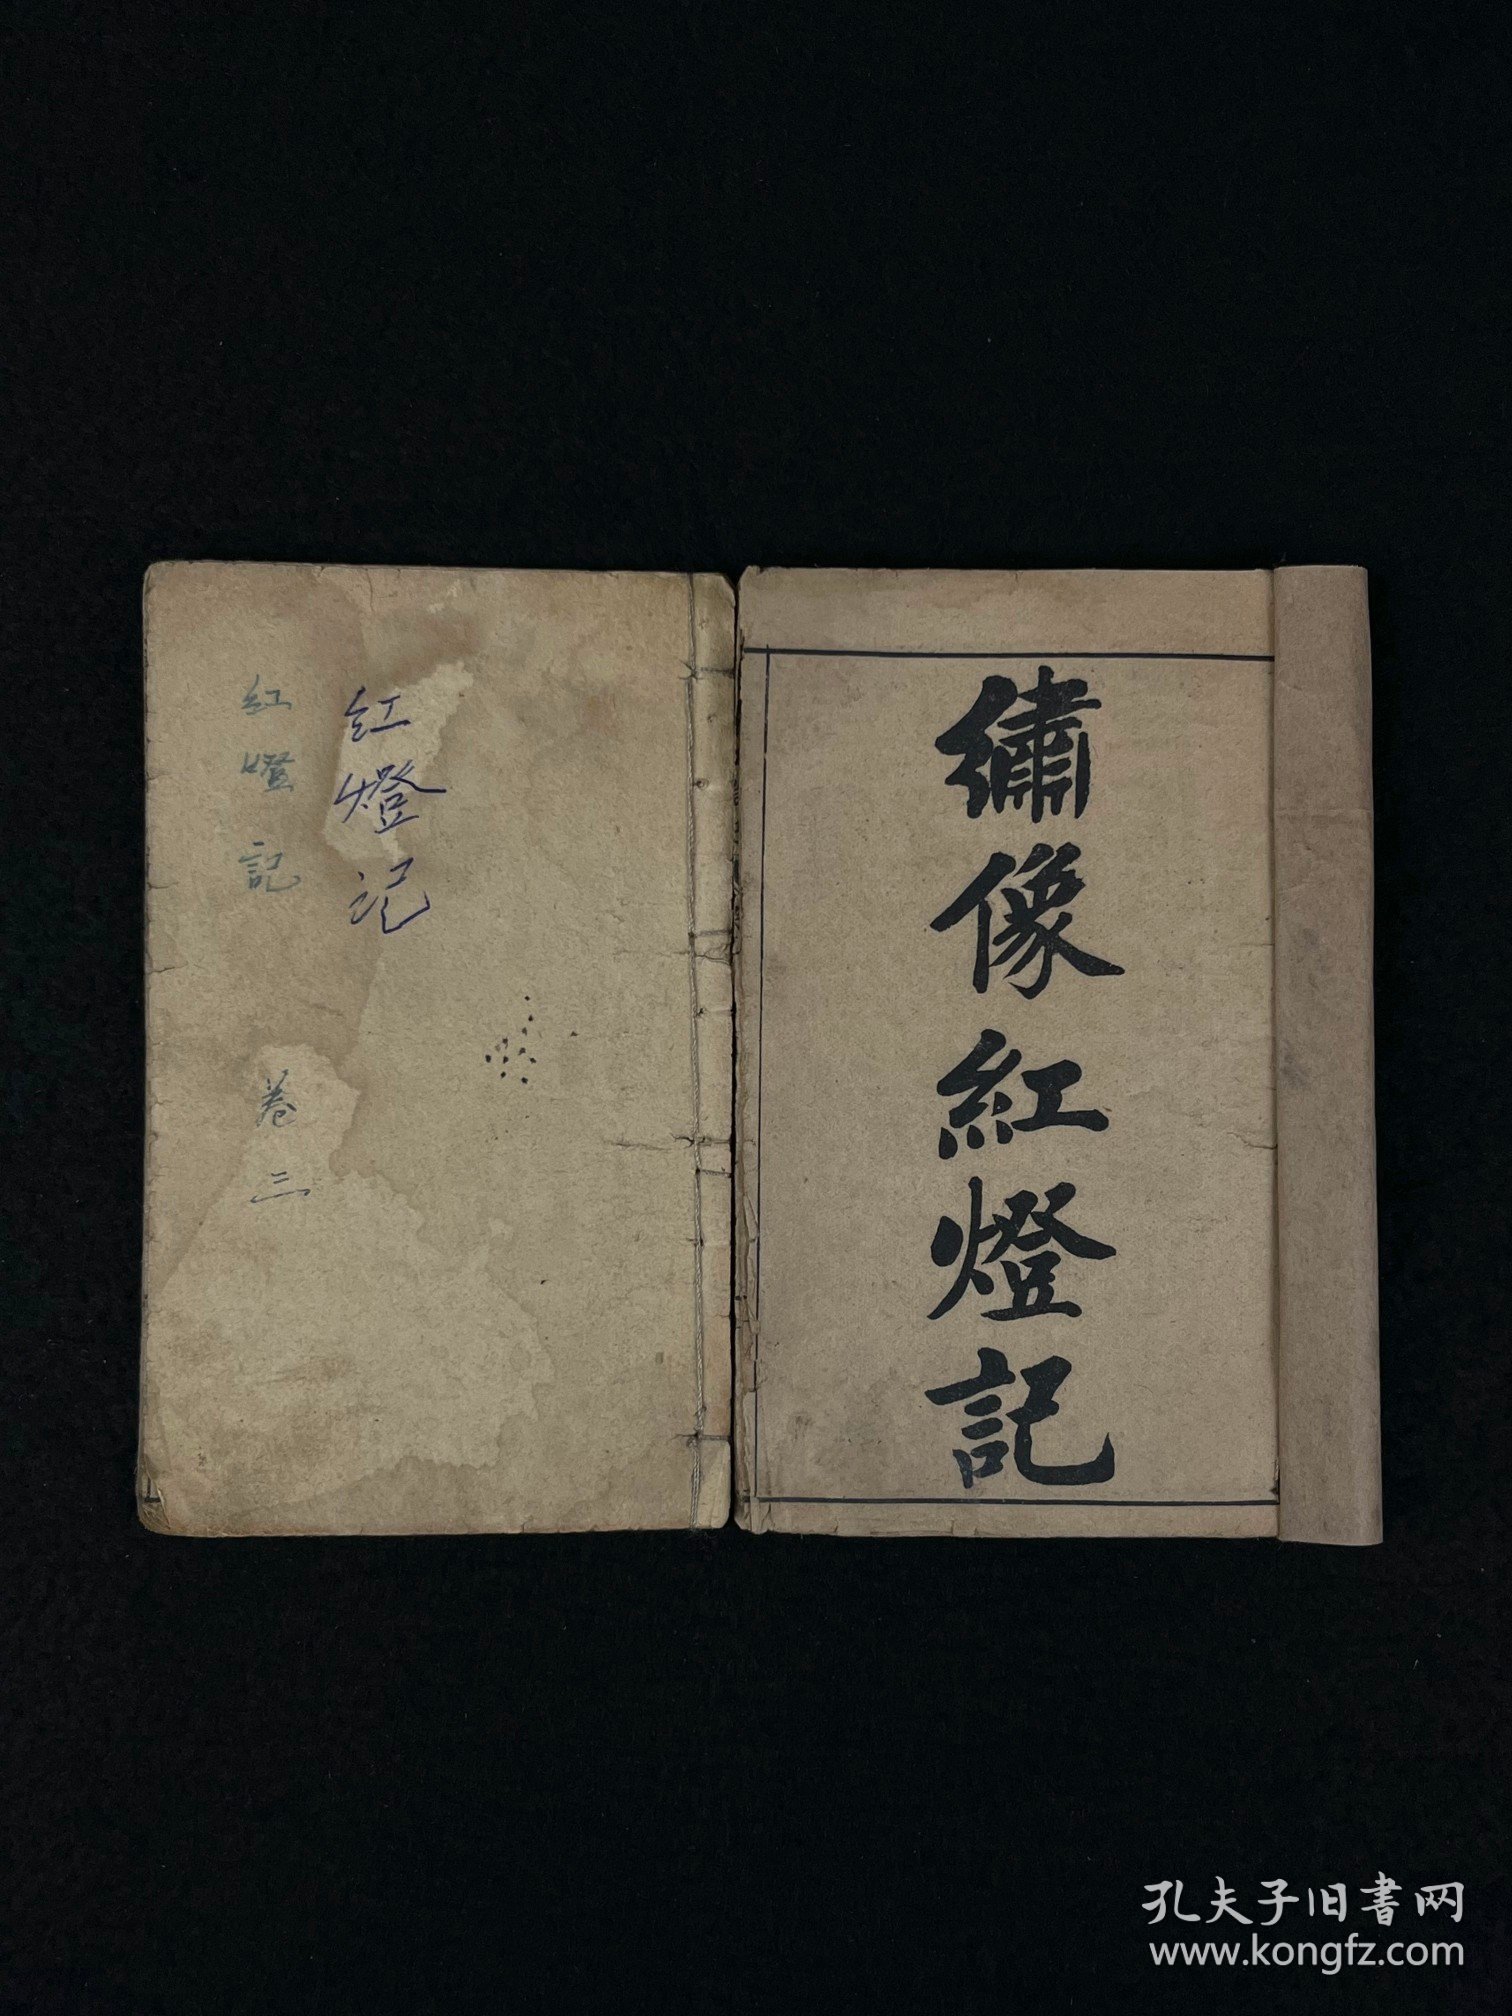 繡像紅燈記
红燈记
紅燈記 卷三
孔夫子旧書网
www.kongfz.com